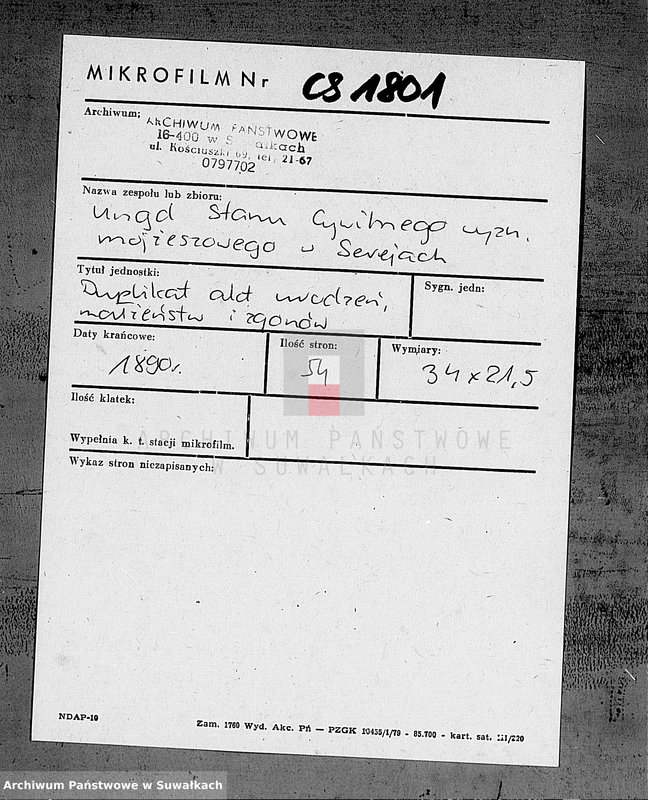 MIKROFILM Nr CS 1801
Archiwum:
ARCHIWUM PAŃSTWOWE
16-400 w S ałkach
ul. Kościuszki 69, tel. 21-67
0797702
Nazwa zespołu lub zbioru:
Urząd Stanu Cywilnego wyzn.
mojżeszowego w Serejach
Tytuł jednostki:
Duplikat akt urodzeń,
małżeństw i zgonów
Sygn. jedn:
Daty krańcowe:
1890r.
Ilość stron:
54
Wymiary:
34 x 21,5
Ilość klatek:
Wypełnia k. t. stacji mikrofilm.
ARCHIWUM PAŃSTWOWE
W SUWAŁKACH
Wykaz stron niezapisanych:
NDAP-10
Zam. 1760 Wyd. Akc. Pń — PZGK 10455/1/79 - 85.700 - kart. sat. III/220
Archiwum Państwowe w Suwałkach